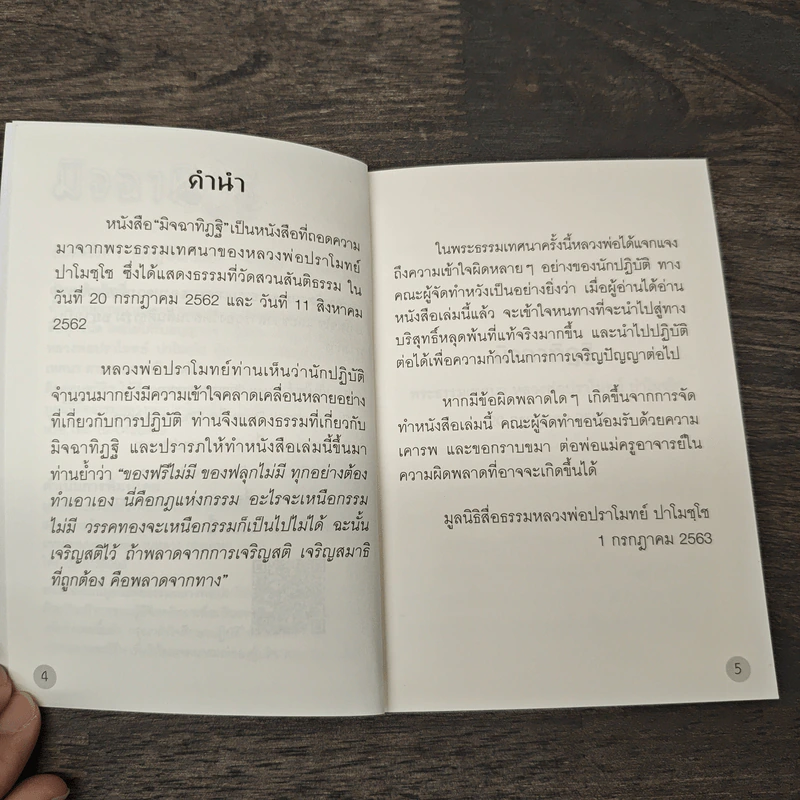 คำนำ
หนังสือ“มิจฉาทิฏฐิ”เป็นหนังสือที่ถอดความ
มาจากพระธรรมเทศนาของหลวงพ่อปราโมทย์
ปาโมชฺโช ซึ่งได้แสดงธรรมที่วัดสวนสันติธรรม ใน
วันที่ 20 กรกฎาคม 2562 และ วันที่ 11 สิงหาคม
2562
หลวงพ่อปราโมทย์ท่านเห็นว่านักปฏิบัติ
จำนวนมากยังมีความเข้าใจคลาดเคลื่อนหลายอย่าง
ที่เกี่ยวกับการปฏิบัติ ท่านจึงแสดงธรรมที่เกี่ยวกับ
มิจฉาทิฏฐิ และปรารภให้ทำหนังสือเล่มนี้ขึ้นมา
ท่านย้ำว่า “ของฟรีไม่มี ของฟลุกไม่มี ทุกอย่างต้อง
ทำเอาเอง นี่คือกฎแห่งกรรม อะไรจะเหนือกรรม
ไม่มี วรรคทองจะเหนือกรรมก็เป็นไปไม่ได้ ฉะนั้น
เจริญสติไว้ ถ้าพลาดจากการเจริญสติ เจริญสมาธิ
ที่ถูกต้อง คือพลาดจากทาง”
4
ในพระธรรมเทศนาครั้งนี้หลวงพ่อได้แจกแจง
ถึงความเข้าใจผิดหลายๆ อย่างของนักปฏิบัติ ทาง
คณะผู้จัดทำหวังเป็นอย่างยิ่งว่า เมื่อผู้อ่านได้อ่าน
หนังสือเล่มนี้แล้ว จะเข้าใจหนทางที่จะนำไปสู่ทาง
บริสุทธิ์หลุดพ้นที่แท้จริงมากขึ้น และนำไปปฏิบัติ
ต่อได้เพื่อความก้าวในการการเจริญปัญญาต่อไป
หากมีข้อผิดพลาดใดๆ เกิดขึ้นจากการจัด
ทำหนังสือเล่มนี้ คณะผู้จัดทำขอน้อมรับด้วยความ
เคารพ และขอกราบขมา ต่อพ่อแม่ครูอาจารย์ใน
ความผิดพลาดที่อาจจะเกิดขึ้นได้
มูลนิธิสื่อธรรมหลวงพ่อปราโมทย์ ปาโมชฺโช
1 กรกฎาคม 2563
5